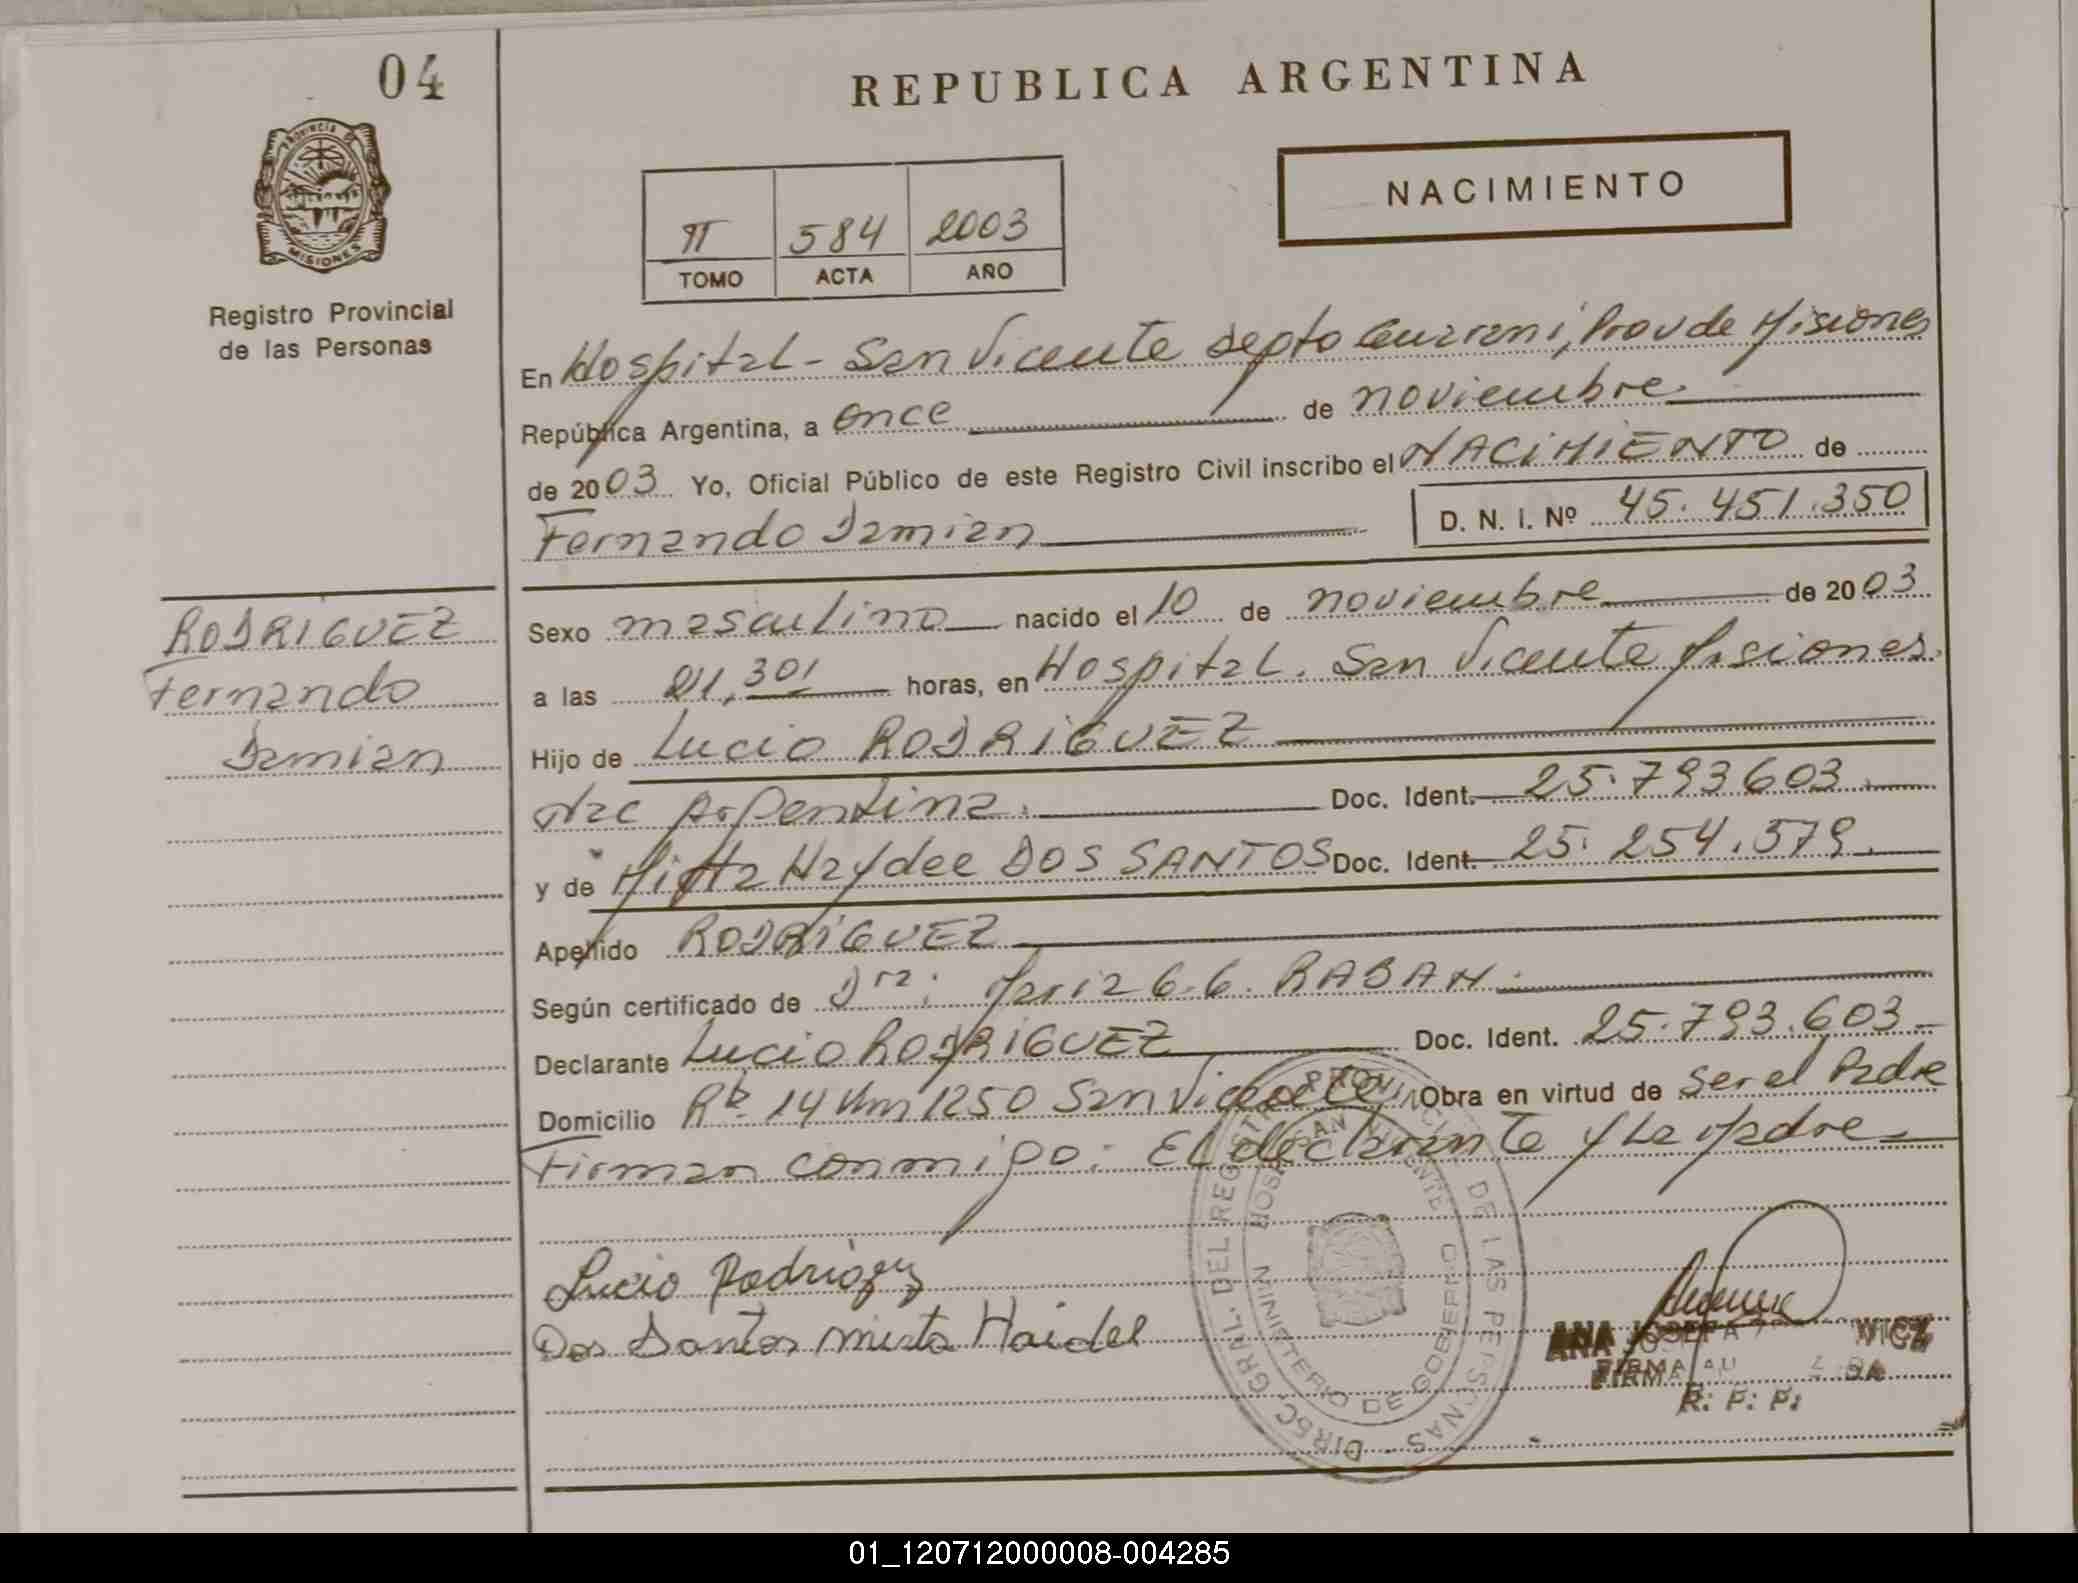 04
REPUBLICA ARGENTINA
PROVINCIA DE
MISIONES
Registro Provincial
de las Personas
NACIMIENTO
II 584 2003
TOMO ACTA AÑO
En Hospital - San Vicente Depto Guarani, Prov de Misiones
República Argentina, a once de noviembre
de 2003 Yo, Oficial Público de este Registro Civil inscribo el NACIMIENTO de
Fernando Damian D. N. I. Nº 45.451.350
RODRIGUEZ
Fernando
Damian
Sexo masculino nacido el 10 de noviembre de 2003
a las 21,30 horas, en Hospital. San Vicente Misiones.
Hijo de Lucio RODRIGUEZ
Nac Argentina. Doc. Ident. 25.793603.
y de Mirta Haydee DOS SANTOS Doc. Ident. 25.254.579.
Apellido RODRIGUEZ
Según certificado de Dra: Maria G. G. RABAH.
Declarante Lucio RODRIGUEZ Doc. Ident. 25.793.603.
Domicilio Rta 14 Km 1250 San Vicente Obra en virtud de ser el Padre
Firman conmigo: El declarante y La Madre
Lucio Rodriguez
Dos Santos Mirta Haidel
DIREC. GRAL. DEL REGISTRO PROVINCIAL DE LAS PERSONAS
HOSPITAL SAN VICENTE
MINISTERIO DE GOBIERNO
ANA JOSEFA WICZ
FIRMA AU
R. P. P.
01_120712000008-004285